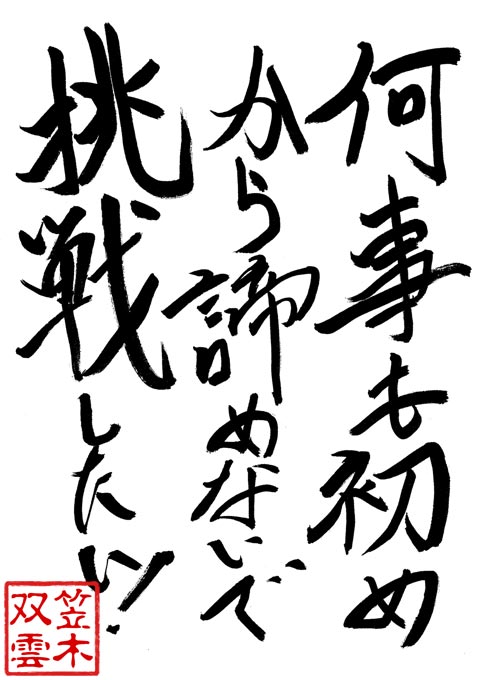 何事も初め
から諦めないで
挑戦したい!
笠木
双雲